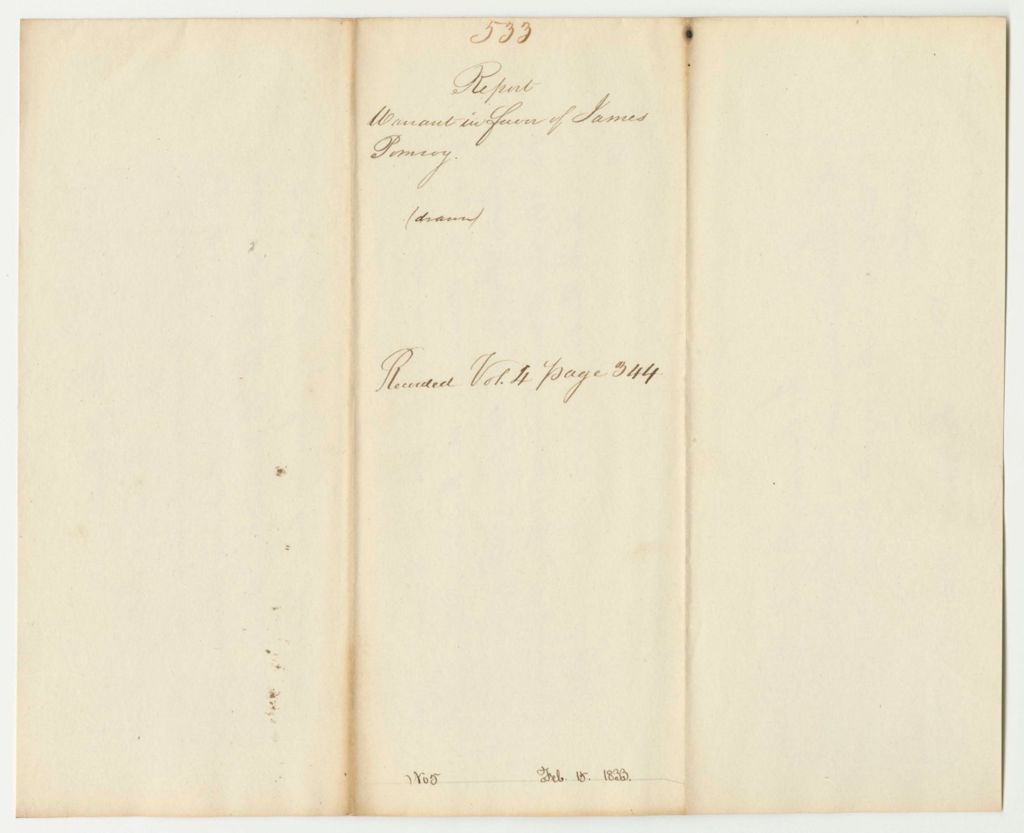 533
Report
Warrant in favor of James
Pomroy.
(drawn)
Recorded Vol. 4 page 344
No 5 Feb. 15. 1833.